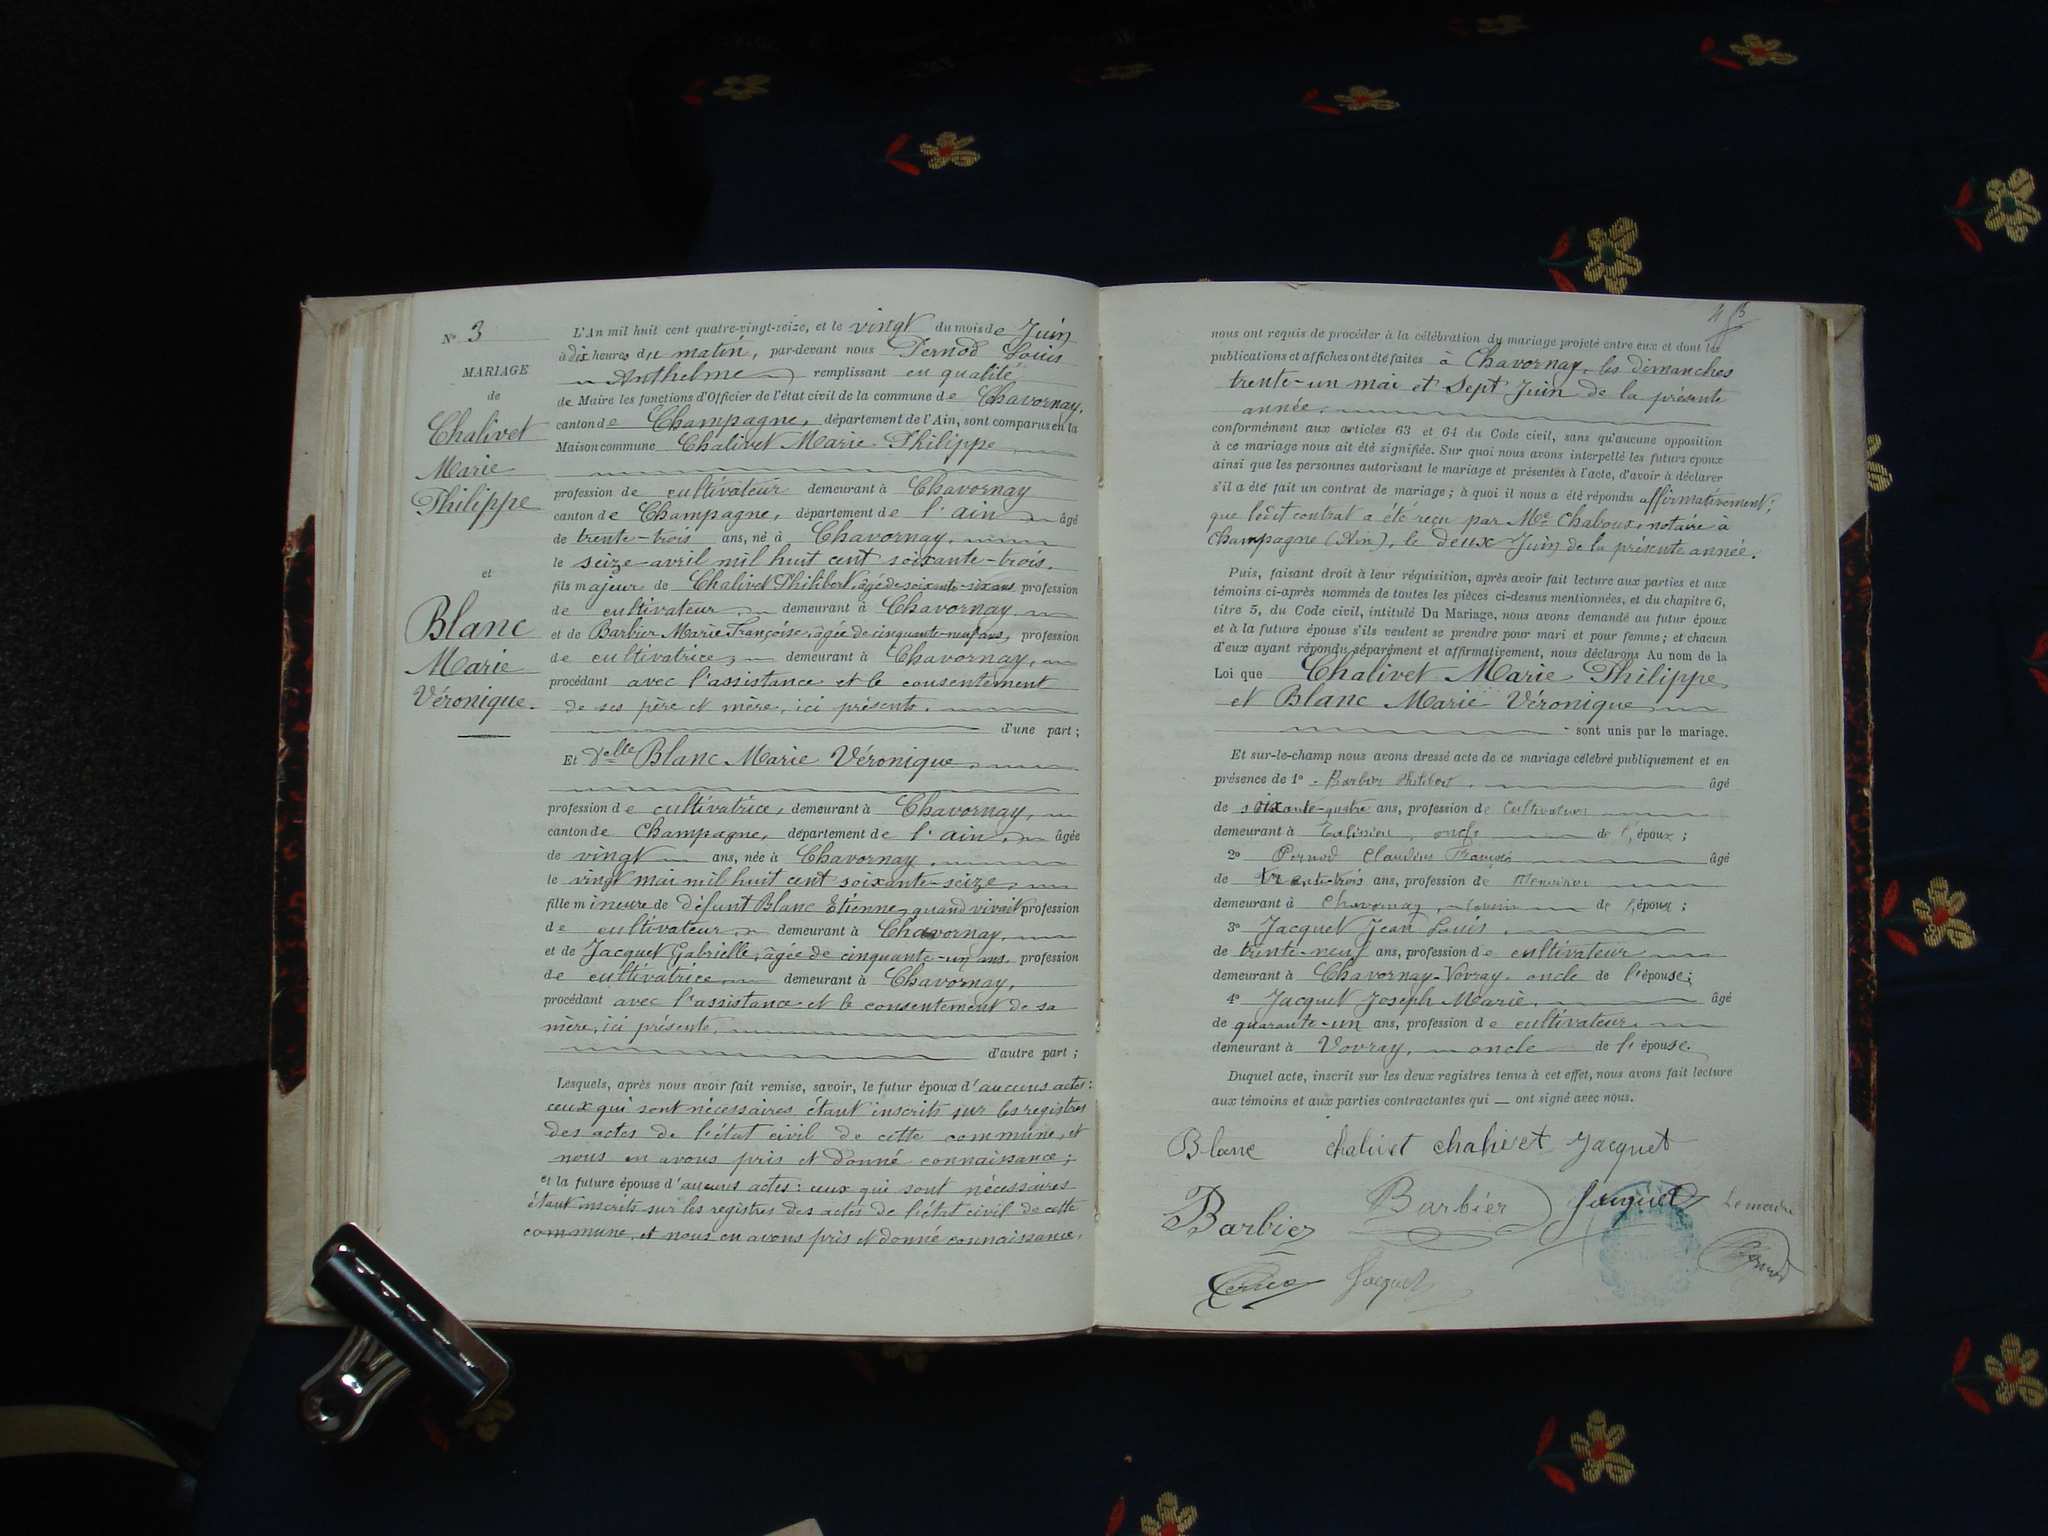 N° 3
MARIAGE
de
Chalivet
Marie
Philippe
et
Blanc
Marie
Véronique.
L'An mil huit cent quatre-vingt-seize, et le vingt du mois de Juin
à dix heures du matin, par-devant nous Pernod Louis
Anthelme remplissant en qualité
de Maire les fonctions d'Officier de l'état civil de la commune de Chavornay,
canton de Champagne, département de l'Ain, sont comparus en la
Maison commune Chalivet Marie Philippe
profession de cultivateur demeurant à Chavornay
canton de Champagne, département de l'ain âgé
de trente-trois ans, né à Chavornay,
le seize avril mil huit cent soixante-trois.
fils majeur de Chalivet Philibert, âgé de soixante-six ans profession
de cultivateur demeurant à Chavornay
et de Barbier Marie Françoise, âgée de cinquante-neuf ans, profession
de cultivatrice, demeurant à Chavornay,
procédant avec l'assistance et le consentement
de ses père et mère, ici présents.
d'une part ;
Et delle Blanc Marie Véronique,
profession de cultivatrice, demeurant à Chavornay,
canton de Champagne, département de l'ain, âgée
de vingt ans, née à Chavornay,
le vingt mai mil huit cent soixante-seize,
fille mineure de défunt Blanc Etienne, quand vivait profession
de cultivateur demeurant à Chavornay,
et de Jacquet Gabrielle, âgée de cinquante-un ans, profession
de cultivatrice demeurant à Chavornay,
procédant avec l'assistance et le consentement de sa
mère, ici présente,
d'autre part ;
Lesquels, après nous avoir fait remise, savoir, le futur époux d'aucuns actes :
ceux qui sont nécessaires étant inscrits sur les registres
des actes de l'état civil de cette commune, et
nous en avons pris et donné connaissance ;
et la future épouse d'aucuns actes : ceux qui sont nécessaires
étant inscrits sur les registres des actes de l'état civil de cette
commune, et nous en avons pris et donné connaissance,
nous ont requis de procéder à la célébration du mariage projeté entre eux et dont les
publications et affiches ont été faites à Chavornay, les dimanches
trente-un mai et sept Juin de la présente
année.
conformément aux articles 63 et 64 du Code civil, sans qu'aucune opposition
à ce mariage nous ait été signifiée. Sur quoi nous avons interpellé les futurs époux
ainsi que les personnes autorisant le mariage et présentes à l'acte, d'avoir à déclarer
s'il a été fait un contrat de mariage ; à quoi il nous a été répondu affirmativement ;
que ledit contrat a été reçu par Me Chaboux, notaire à
Champagne (Ain), le deux Juin de la présente année.
Puis, faisant droit à leur réquisition, après avoir fait lecture aux parties et aux
témoins ci-après nommés de toutes les pièces ci-dessus mentionnées, et du chapitre 6,
titre 5, du Code civil, intitulé Du Mariage, nous avons demandé au futur époux
et à la future épouse s'ils veulent se prendre pour mari et pour femme ; et chacun
d'eux ayant répondu séparément et affirmativement, nous déclarons Au nom de la
Loi que Chalivet Marie Philippe
et Blanc Marie Véronique
sont unis par le mariage.
Et sur-le-champ nous avons dressé acte de ce mariage célébré publiquement et en
présence de 1° Barbier Philibert âgé
de soixante-quatre ans, profession de Cultivateur
demeurant à oncle de l'époux ;
2° Pernod Claudius François âgé
de trente-trois ans, profession de Menuisier
demeurant à Chavornay, cousin de l'époux ;
3° Jacquet Jean Louis,
de trente-neuf ans, profession de cultivateur
demeurant à Chavornay-Vovray, oncle de l'épouse ;
4° Jacquet Joseph Marie, âgé
de quarante-un ans, profession de cultivateur,
demeurant à Vovray, oncle de l'épouse.
Duquel acte, inscrit sur les deux registres tenus à cet effet, nous avons fait lecture
aux témoins et aux parties contractantes qui ont signé avec nous.
Blanc chalivet chalivet Jacquet
Barbier Barbier Jacquet Le maire
Jacquet Pernod